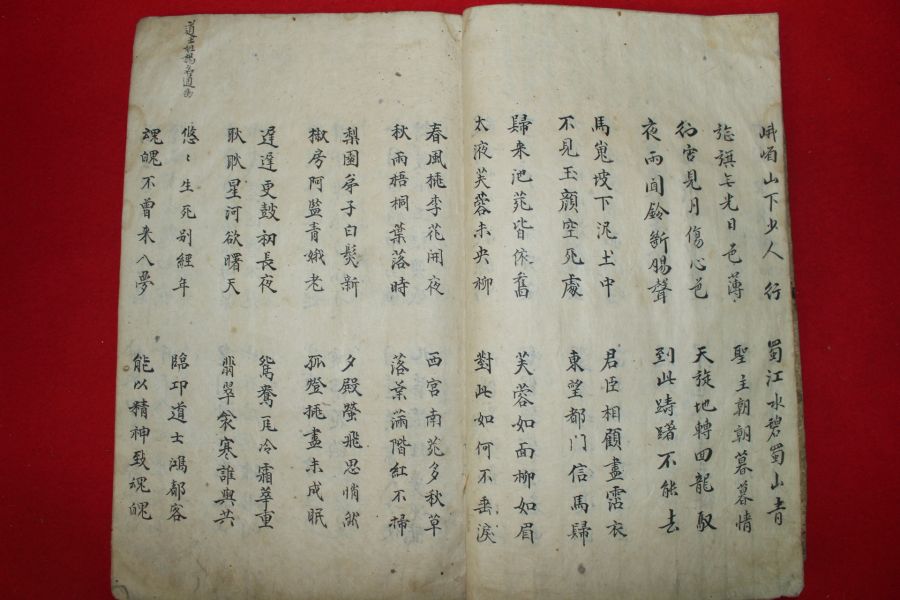 峨嵋山下少人行
旌旗无光日色薄
蜀江水碧蜀山青
聖主朝朝暮暮情
行宮見月傷心色
夜雨聞鈴斷腸聲
天旋地轉回龍馭
到此躊躇不能去
馬嵬坡下泥土中
不見玉顏空死處
君臣相顧盡霑衣
東望都門信馬歸
歸来池苑皆依舊
太液芙蓉未央柳
芙蓉如面柳如眉
對此如何不垂淚
春風桃李花開夜
秋雨梧桐葉落時
西宮南苑多秋草
落葉滿階紅不掃
梨園弟子白髮新
椒房阿監青娥老
夕殿螢飛思悄然
孤燈挑盡未成眠
遲遲更鼓初長夜
耿耿星河欲曙天
鴛鴦瓦冷霜華重
翡翠衾寒誰與共
道士姓楊名通幽
悠〻生死别經年
魂魄不曾来入夢
臨卭道士鴻都客
能以精神致魂魄